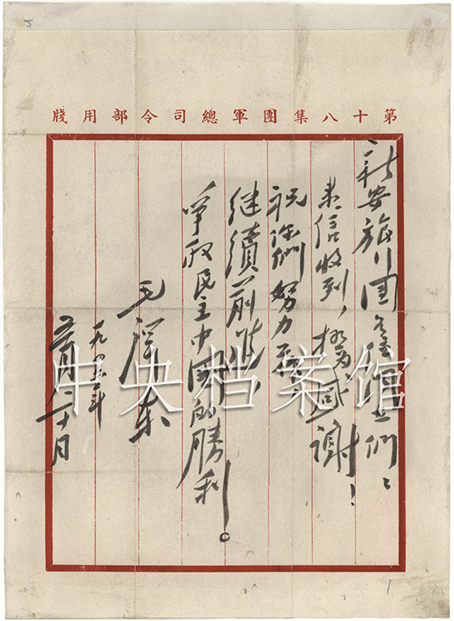 第十八集團軍總司令部用牋
新安旅行團 們：
来信收到，極为感谢！
祝你們努力
继續前進，
爭取民主中國的勝利。
毛澤东
一九四六年
五月二十日
中央档案馆